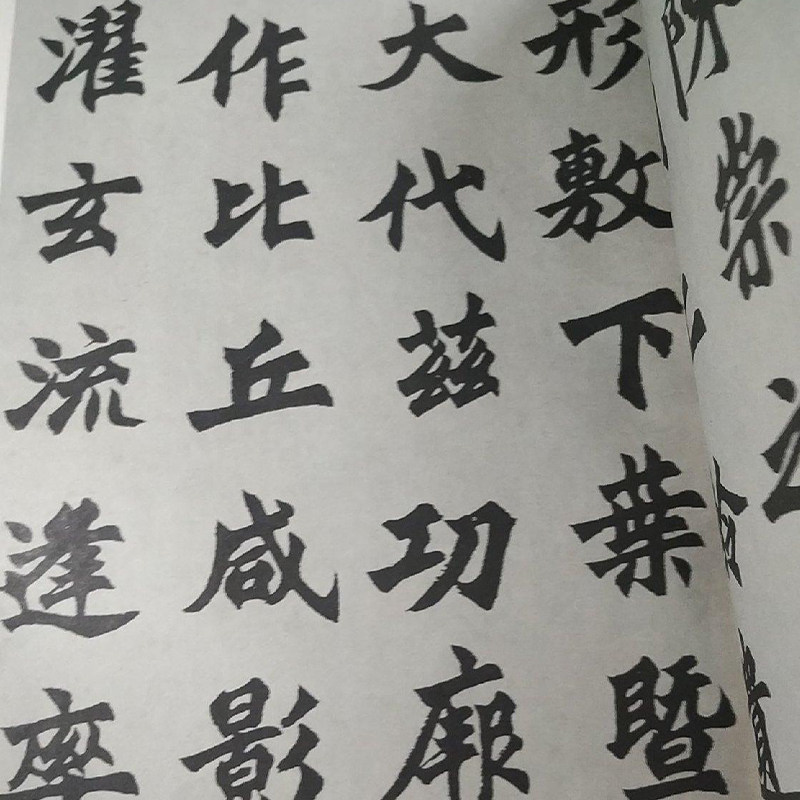 形敷下葉暨
大代茲功厥
作比丘咸影
濯玄流逢率